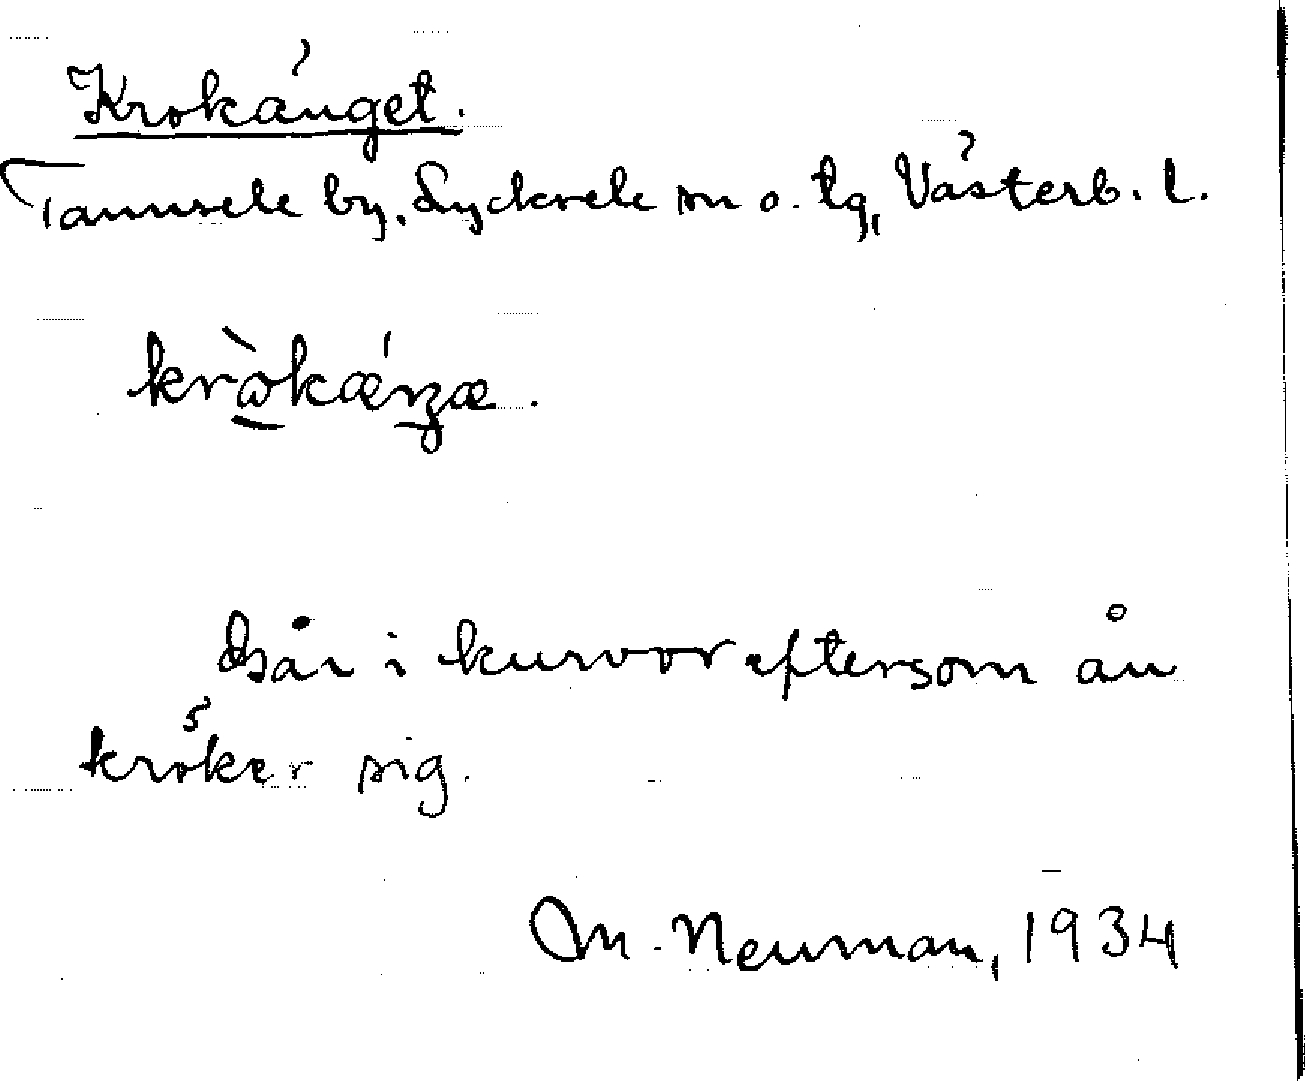 Krokänget.
Tannsele by, Lycksele sn o. tg, Västerb. l.
krὼkǽŋæ.
Går i kurvor eftersom ån
kröker sig.
M. Neuman, 1934